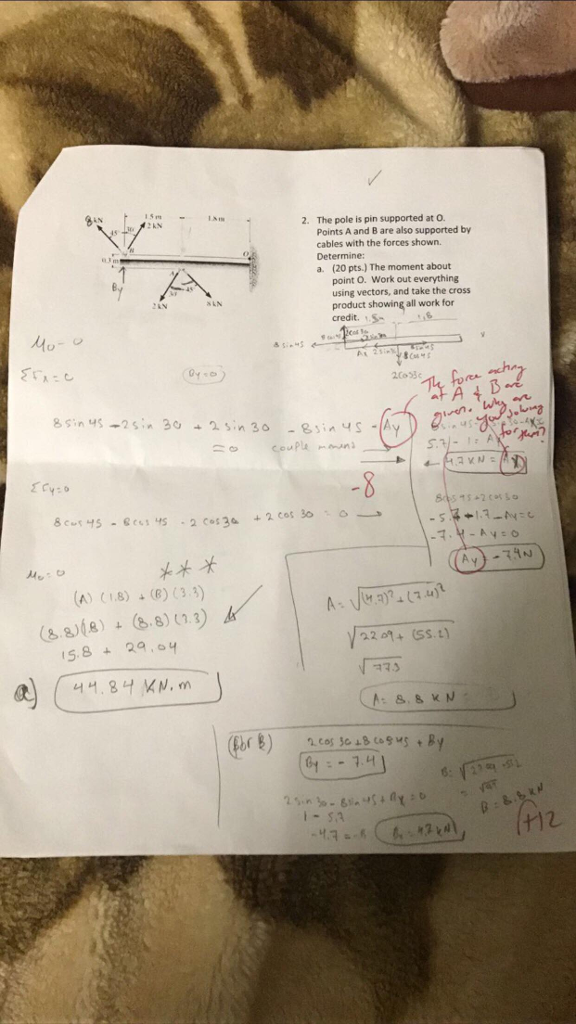 8 kN
1.5 m
2 kN
1.8 m
45°
30
B
O
0.3 m
By
A
30
45°
2 kN
8 kN
2. The pole is pin supported at O.
Points A and B are also supported by
cables with the forces shown.
Determine:
a. (20 pts.) The moment about
point O. Work out everything
using vectors, and take the cross
product showing all work for
credit.
1.8
8 sin 45
x
2cos30
8cos45
2cos30
Mo = 0
ΣFx = 0
By=0
8 sin 45 - 2 sin 30 + 2 sin 30 - 8 sin 45 - Ay
= 0 couple moment
The force acting
at A & B are
given. Why are
you solving
for them?
4.7 kN = Ax
-8
ΣFy=0
8 cos 45 - 8 cos 45 - 2 cos 30 + 2 cos 30 = 0
8cos 45 + 2cos 30
-5.7 - 1.7 - Ay = 0
-7.4 - Ay = 0
Ay = -7.4N
Mo = 0
(A) (1.8) + (B) (3.3)
(8.8)(1.8) + (8.8)(3.3)
15.8 + 29.04
a) 44.84 KN.m
A = √(4.7)² + (7.4)²
√22.09 + (55.2)
√77.3
A = 8.8 KN
(for B)
2 cos 30 + 8 cos 45 + By
By = - 7.4
2 sin 30 - 8 sin 45 + Bx = 0
1 - 5.7
Bx = 4.7 kN
B = 8.8 kN
+12